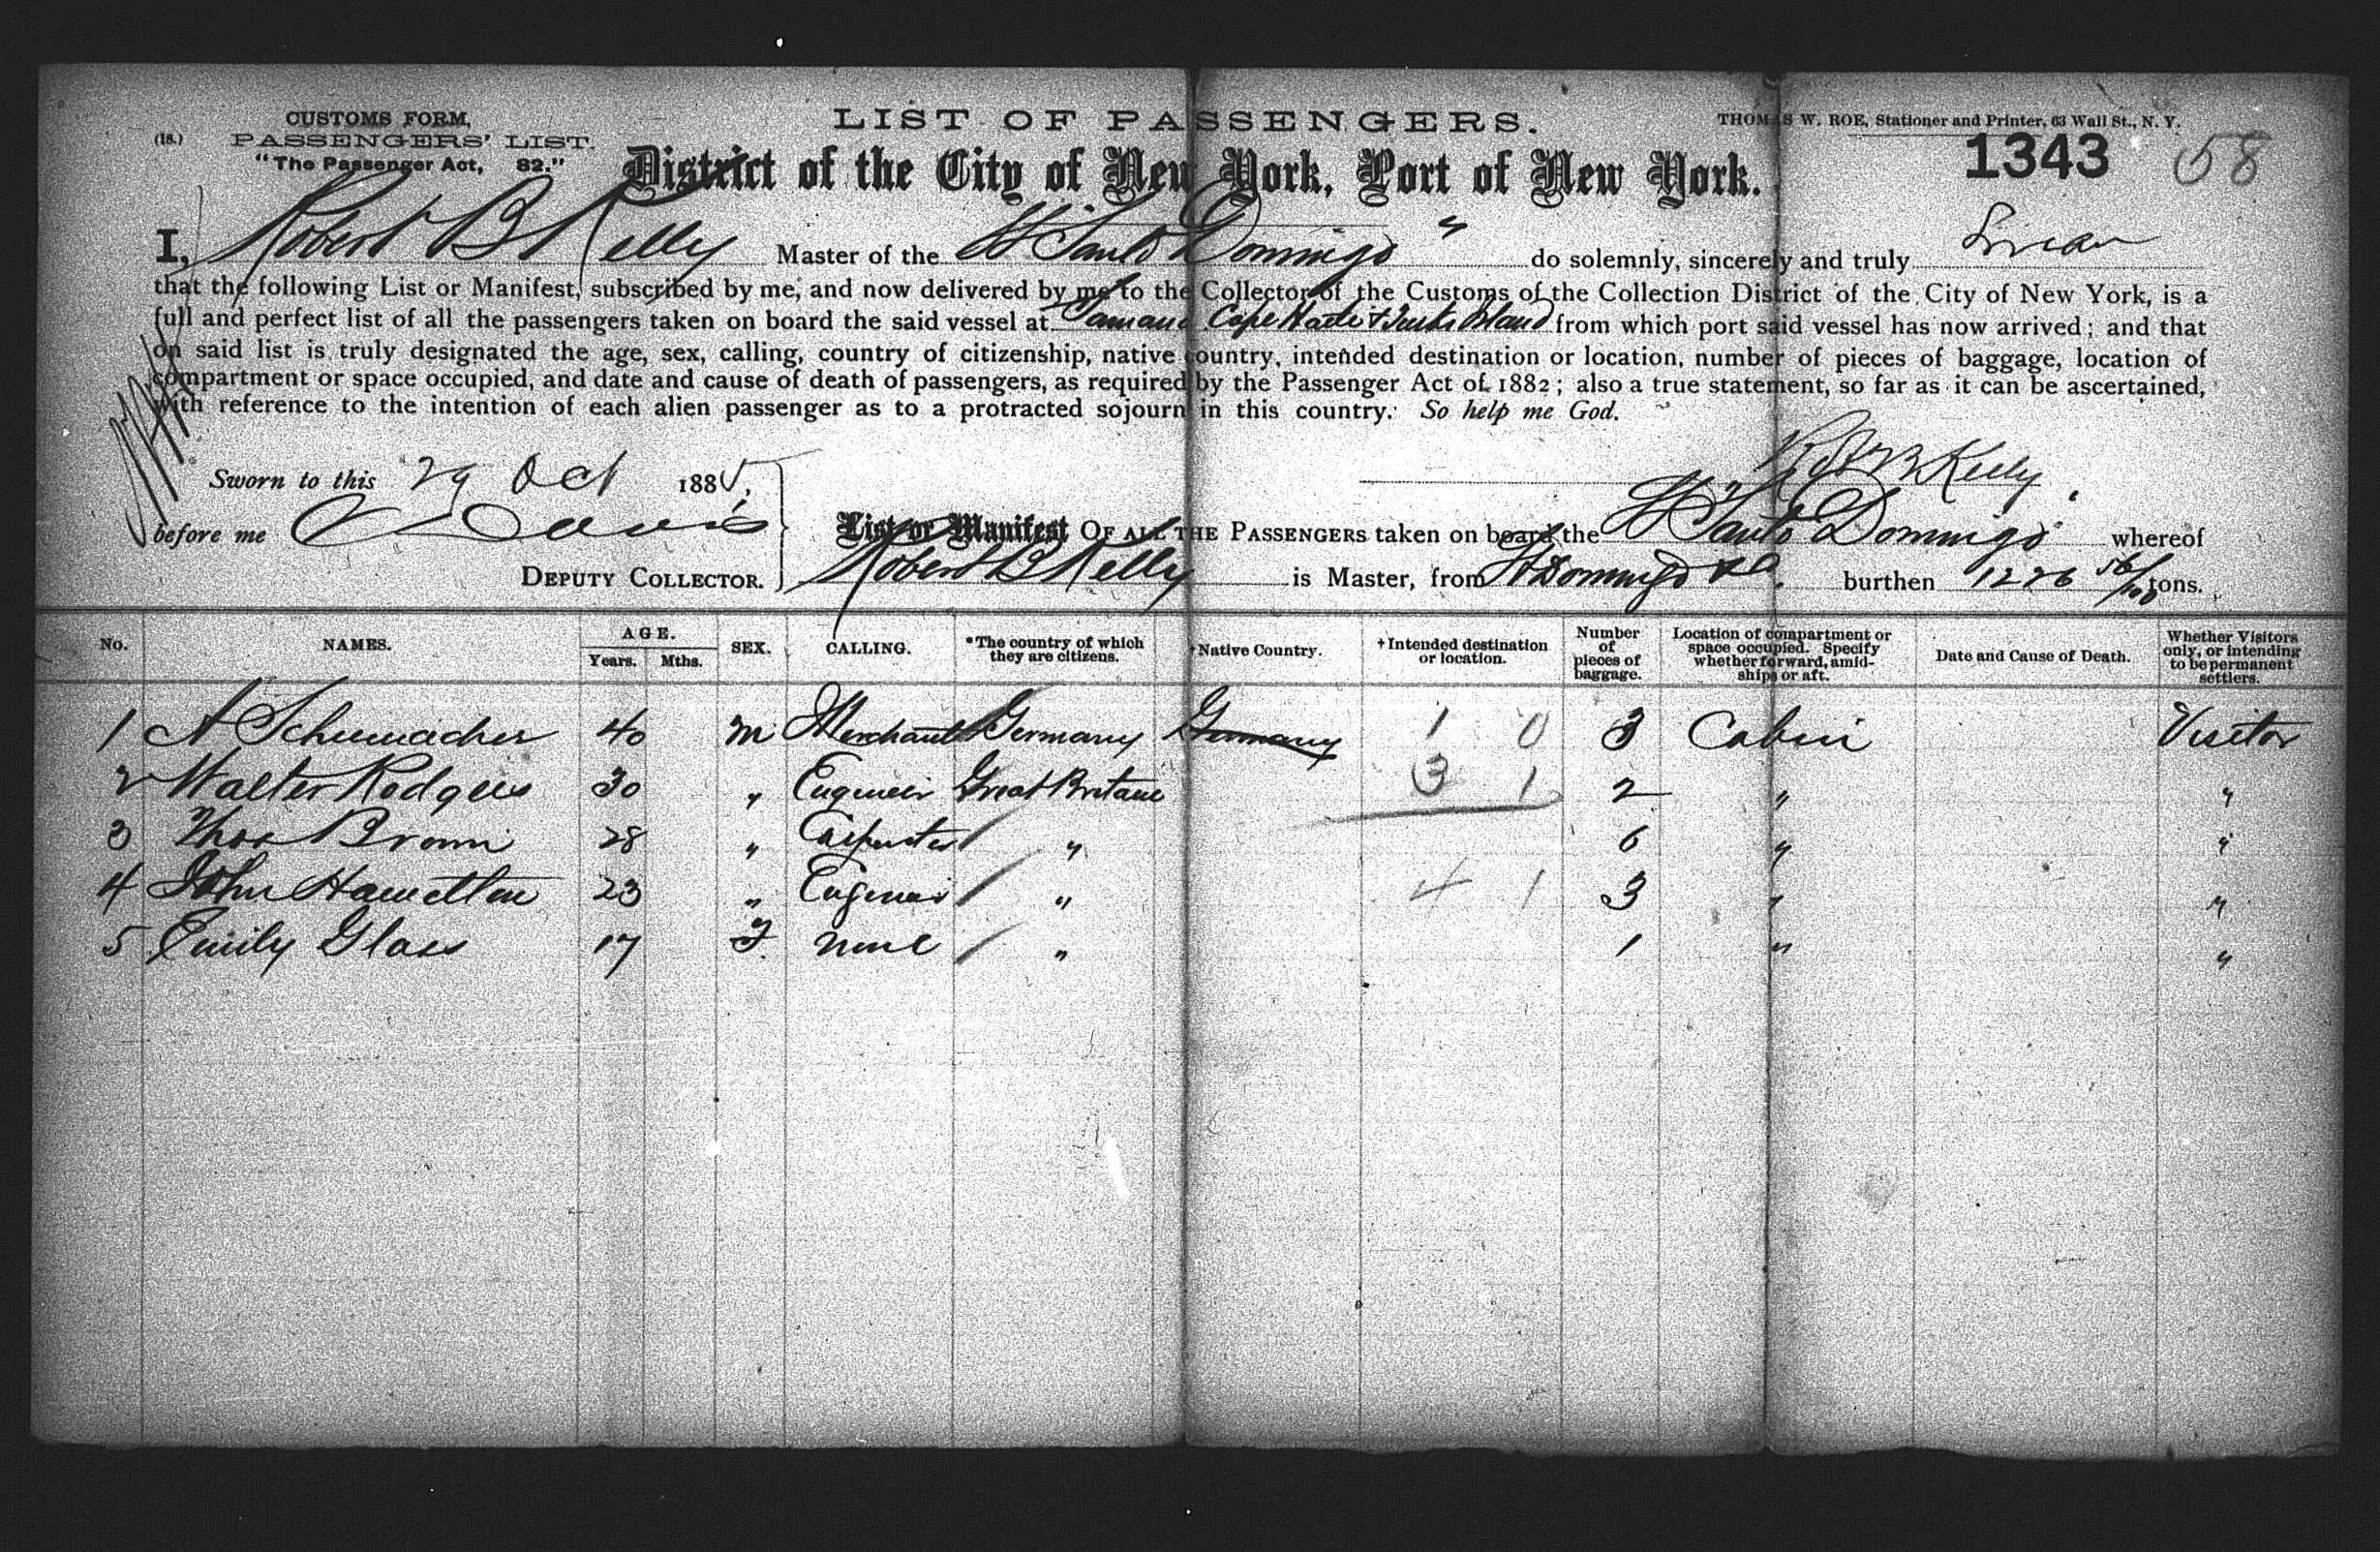 CUSTOMS FORM,
(18.) PASSENGERS' LIST.
"The Passenger Act, 82."
LIST OF PASSENGERS.
THOMAS W. ROE, Stationer and Printer, 63 Wall St., N. Y.
District of the City of New York, Port of New York.
1343 58
I, Robert B Kelly Master of the Santo Domingo " do solemnly, sincerely and truly Swear
that the following List or Manifest, subscribed by me, and now delivered by me to the Collector of the Customs of the Collection District of the City of New York, is a
full and perfect list of all the passengers taken on board the said vessel at Samana Cape Haiti & Turks Island from which port said vessel has now arrived; and that
on said list is truly designated the age, sex, calling, country of citizenship, native country, intended destination or location, number of pieces of baggage, location of
compartment or space occupied, and date and cause of death of passengers, as required by the Passenger Act of 1882; also a true statement, so far as it can be ascertained,
with reference to the intention of each alien passenger as to a protracted sojourn in this country. So help me God.
Sworn to this 29 Oct 1885,
Robt B Kelly
before me Davis
DEPUTY COLLECTOR.
List or Manifest OF ALL THE PASSENGERS taken on board the Santo Domingo whereof
Robert B Kelly is Master, from St Domingo burthen 1226 56/100 tons.
No. NAMES. AGE. Years. Mths. SEX. CALLING. *The country of which they are citizens. †Native Country. †Intended destination or location. Number of pieces of baggage. Location of compartment or space occupied. Specify whether forward, amidships or aft. Date and Cause of Death. Whether Visitors only, or intending to be permanent settlers.
1 A Schumacher 40 m Merchant Germany Germany 1 0 3 Cabin Visitor
2 Walter Rodgers 30 " Engineer Great Britane 3 1 2 " "
3 Thos Brown 28 " Carpenter " 6 " "
4 John Hamelton 23 " Engineer " 4 1 3 " "
5 Emily Glass 17 F. none " 1 " "